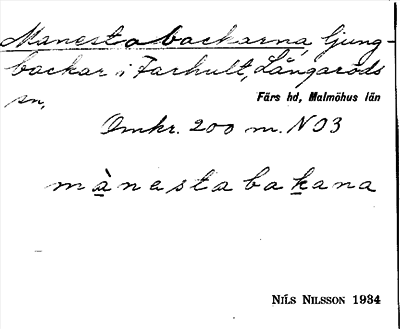 Manestabackarna, ljung-
backar i Farhult, Långaröds
sn.
Färs hd, Malmöhus län
Omkr. 200 m. N O3
mànestabakana
NILS NILSSON 1934